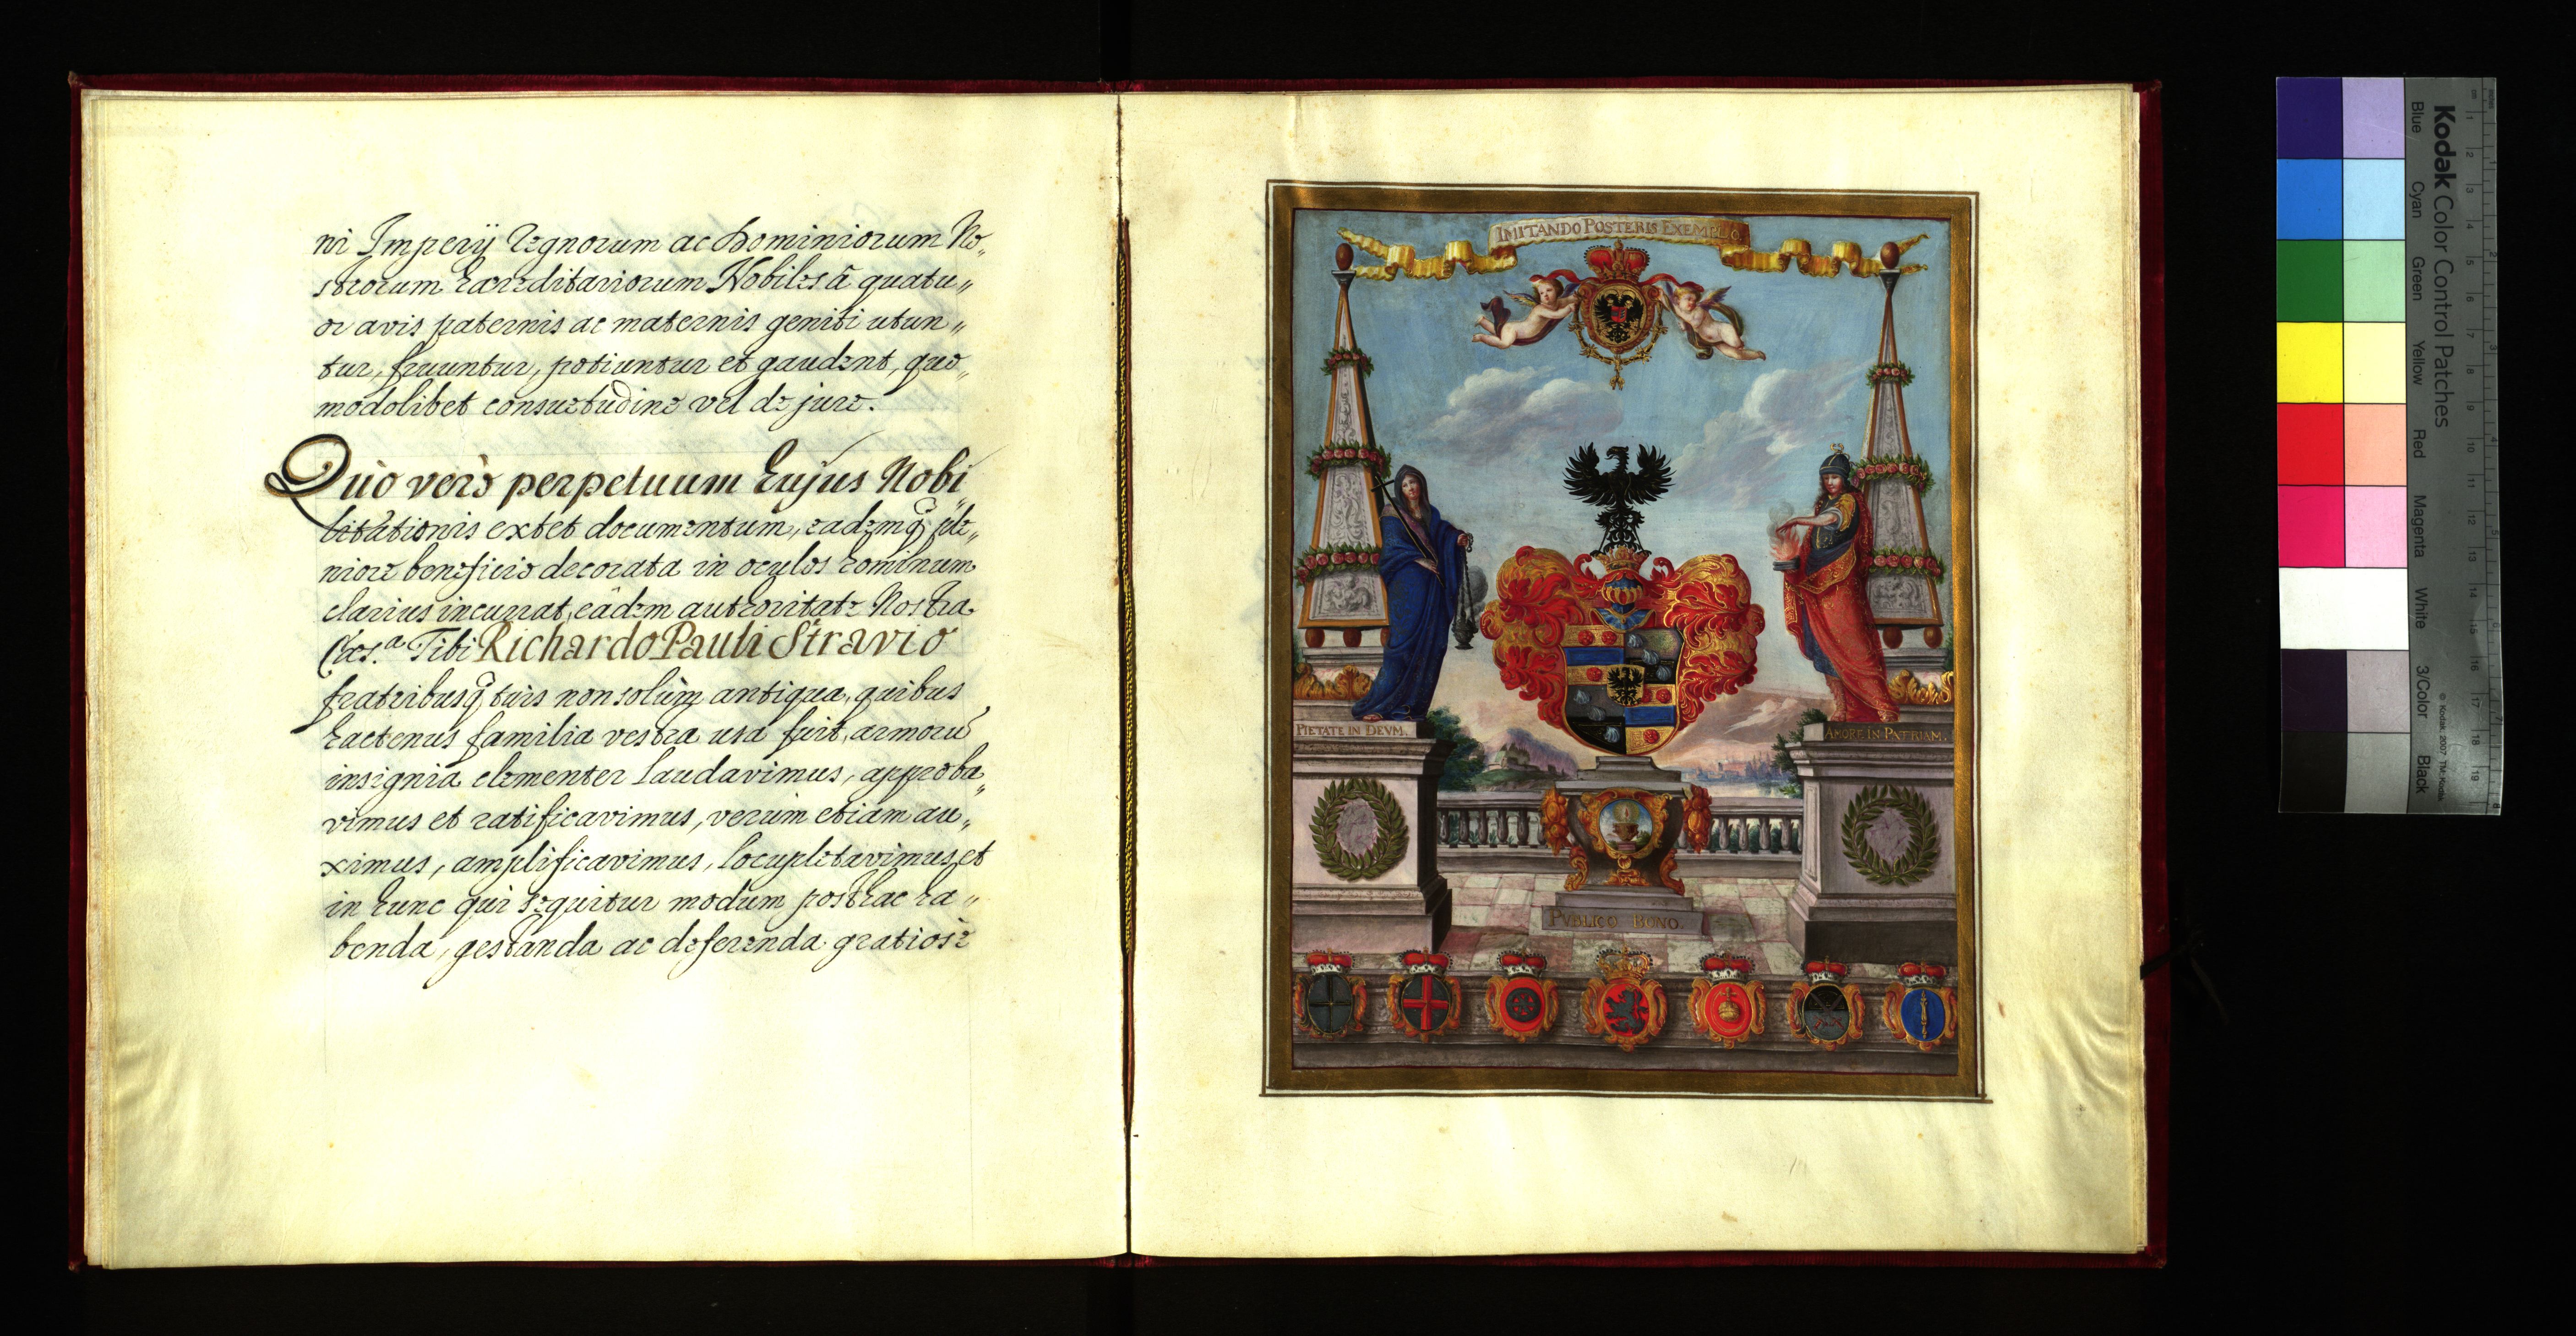 ni Imperÿ Regnorum ac Dominiorum No„
strorum haereditariorum Nobiles à quatu„
or avis paternis ac maternis geniti utun„
tur, fruuntur, potiuntur et gaudent, quo„
modolibet consuetudine vel de jure.
Quo verò perpetuum hujus Nobi„
litationis extet documentum, eademq̃ ple„
niore beneficio decorata in oculos hominum
clarius incurrat, eâdem authoritate Nostra
Caes.ᵃ Tibi Richardo Pauli Stravio
fratribusq̃ tuis non solùm antiqua, quibus
hactenus familia vestra usa fuit, armorū
insignia clementer laudavimus, approba„
vimus et ratificavimus, verùm etiam au„
ximus, amplificavimus, locupletavimus et
in hunc qui sequitur modum posthac ha„
benda, gestanda ac deferenda gratiosè
IMITANDO POSTERIS EXEMPLO.
PIETATE IN DEVM.
AMORE IN PATRIAM.
PVBLICO BONO.
Kodak Color Control Patches
Blue Cyan Green Yellow Red Magenta White 3/Color Black
© Kodak, 2007 TM: Kodak
cm 1 2 3 4 5 6 7 8 9 10 11 12 13 14 15 16 17 18 19
inches 1 2 3 4 5 6 7 8